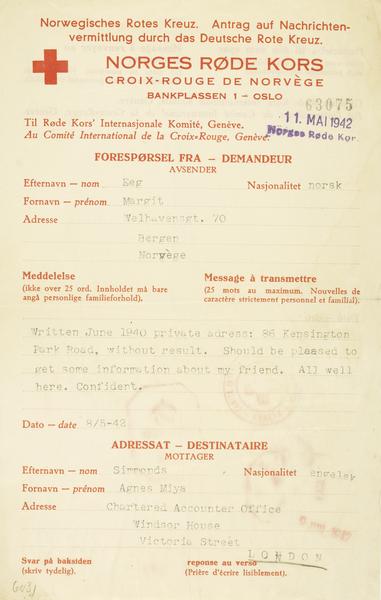 Norwegisches Rotes Kreuz. Antrag auf Nachrichten-
vermittlung durch das Deutsche Rote Kreuz.
NORGES RØDE KORS
CROIX-ROUGE DE NORVÈGE
BANKPLASSEN 1 – OSLO
63075
11. MAI 1942
Norges Røde Kor.
Til Røde Kors' Internasjonale Komité, Genève.
Au Comité International de la Croix-Rouge, Genève.
FORESPØRSEL FRA – DEMANDEUR
AVSENDER
Efternavn – nom Eeg Nasjonalitet norsk
Fornavn – prénom Margit
Adresse Welhavensgt. 70
Bergen
Norvège
Meddelelse
(ikke over 25 ord. Innholdet må bare
angå personlige familieforhold).
Message à transmettre
(25 mots au maximum. Nouvelles de
caractère strictement personnel et familial).
Written June 1940 private adress: 86 Kensington
Park Road, without result. Should be pleased to
get some information about my friend. All well
here. Confident.
Dato – date 8/5-42
ADRESSAT – DESTINATAIRE
MOTTAGER
Efternavn – nom Simmonds Nasjonalitet engelsk
Fornavn – prénom Agnes Miya
Adresse Chartered Accounter Office
Windsor House
Victoria Street
LONDON
Svar på baksiden
(skriv tydelig).
reponse au verso
(Prière d'écrire lisiblement).